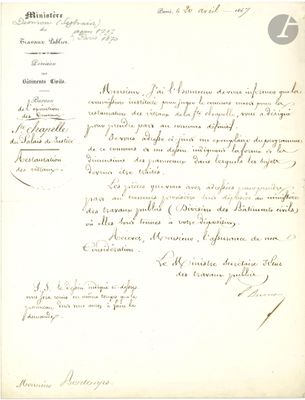 Ministère
des
Travaux Publics.
Paris, le 20 avril 1847
Division
des
Bâtiments Civils.
Bureau
Ste Chapelle
du Palais de Justice
Restauration
des vitraux
Monsieur, J'ai l'honneur de vous informer que la
commission instituée pour juger le concours ouvert pour la
restauration des vitraux de la Ste Chapelle, vous a désigné
pour prendre part au concours définitif.
Je vous adresse ci-joint un exemplaire du programme
de ce concours et un dessin indiquant la forme et les
dimensions des panneaux dans lesquels les sujets
devront être traités.
Les pièces que vous avez adressées pour prendre
part au concours provisoire sont déposées au ministère
des travaux publics (Division des Bâtiments civils)
où elles sont tenues à votre disposition.
Recevez, Monsieur, l'assurance de ma
Considération.
Le Ministre Secrétaire d'Etat
des travaux publics
P.S. Le dessin indiqué ci-dessus
vous sera remis en même temps que le
panneau que vous aurez à faire la
demande.
Monsieur Bontemps.